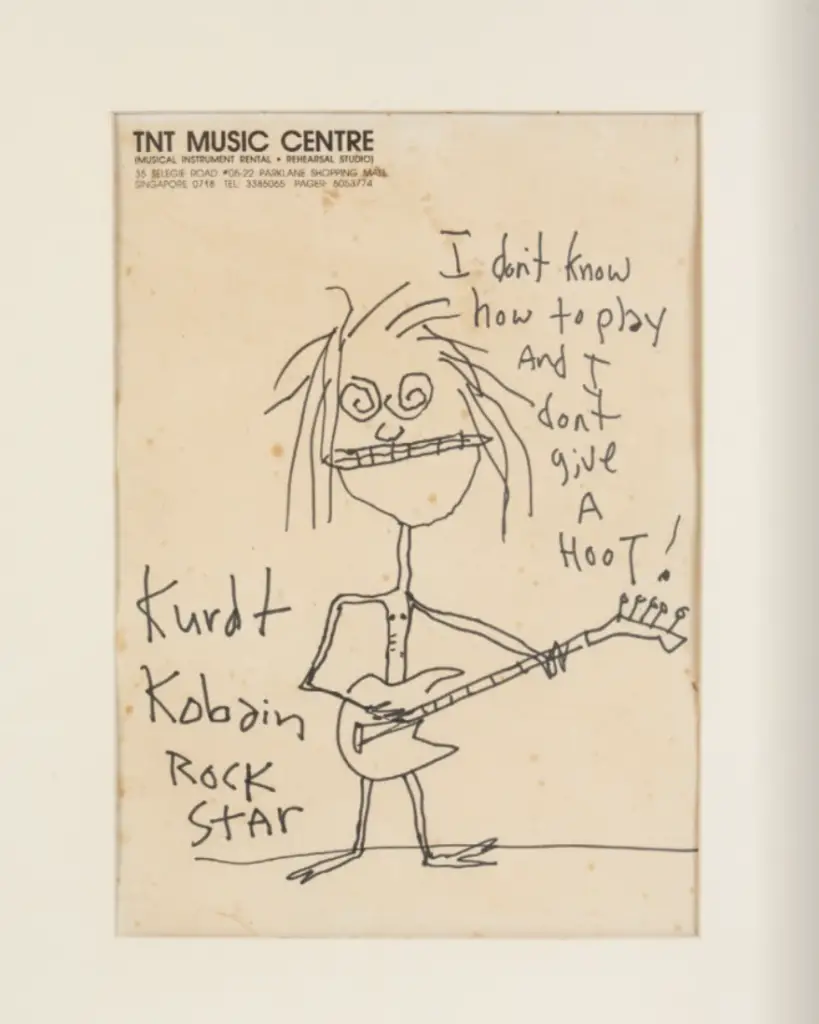 TNT MUSIC CENTRE
(MUSICAL INSTRUMENT RENTAL • REHEARSAL STUDIO)
35 SELEGIE ROAD #05-22 PARKLANE SHOPPING MALL
SINGAPORE 0718 TEL: 3385065 PAGER: 6053774
I don't know
how to play
And I
don't
give
A
HOOT!
Kurdt
Kobain
ROCK
STAr